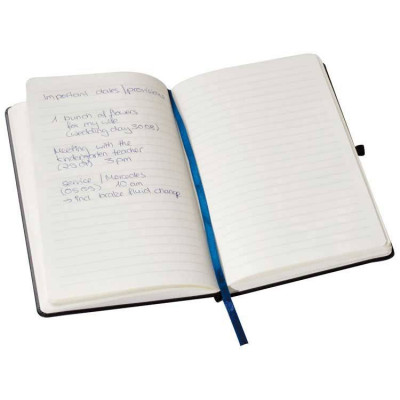 Important dates/provisions
1 bunch of flowers
for my wife
(wedding day 30.08)
Meeting with the
kindergarten teacher
(25.09) 3 pm
service / Mercedes
(05.05) 10 am
→ incl. brake fluid change